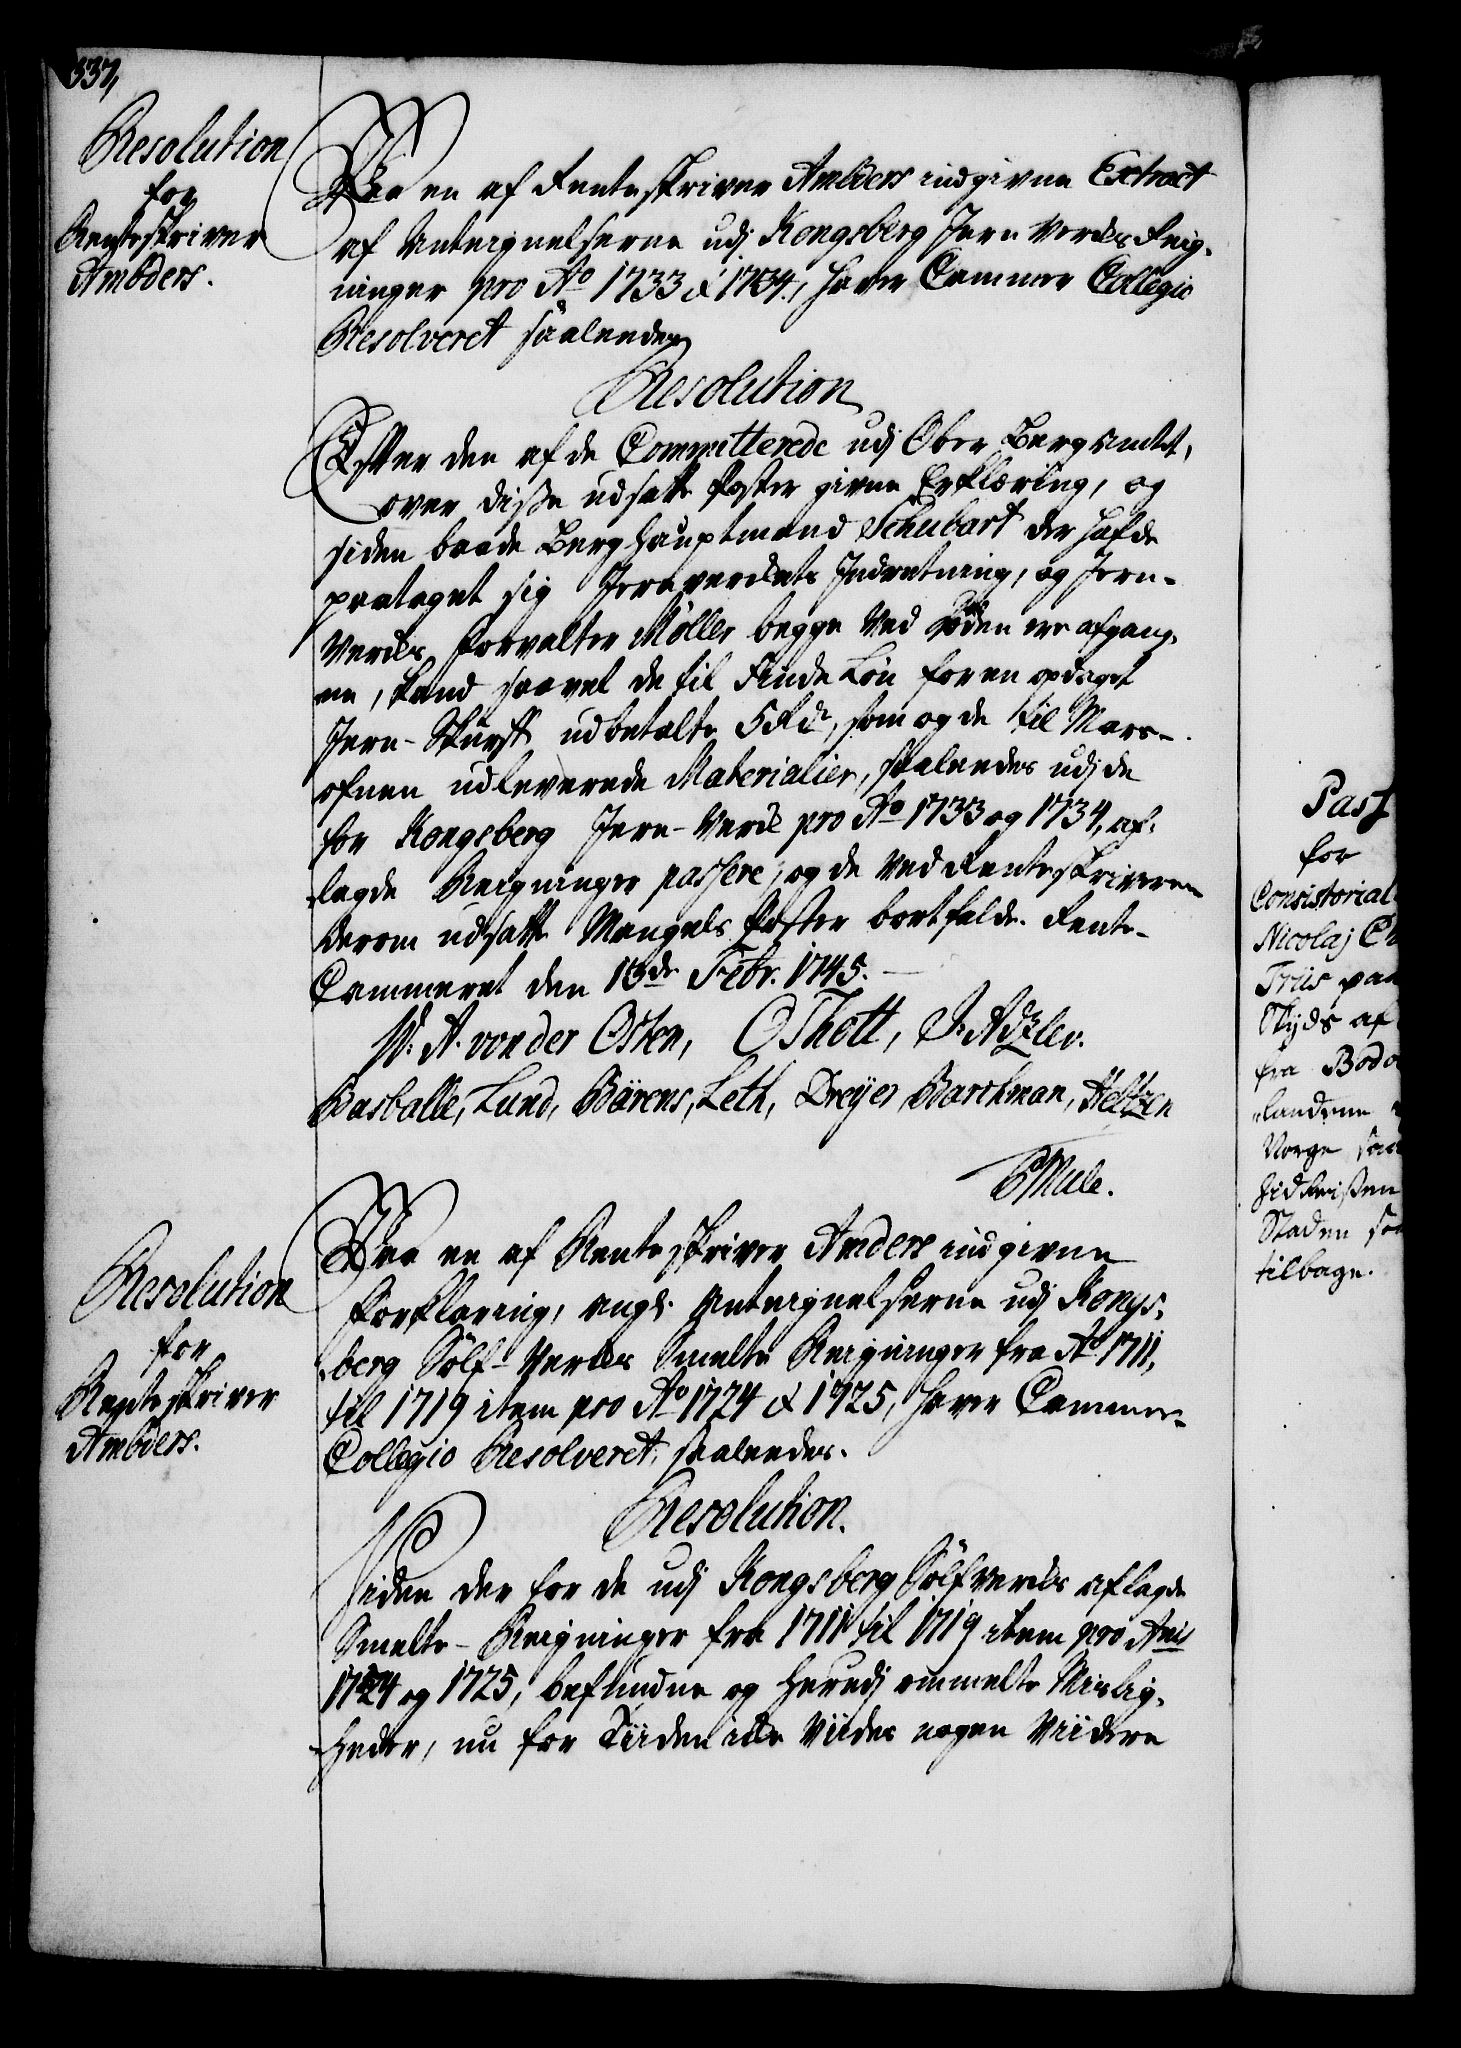 337,
Resolution
for
Renteskriver
Ambders.
Paa en af Renteskriver Ambders indgivne Extract
af Antegnelserne udj Kongsberg Jern Verks Reig-
ninger pro Ao 1733 & 1734, haver Cammer Collegio
Resolveret saaledes
Resolution
Efter den af de Committerede udj Ober Berg Amtet,
over disse udsatte Poster givne Erklæring, og
siden baade Berg Hauptmand Schubart der hafde
paataget sig Jernverkets Indretning, og Jern-
Verks Forvalter Möller begge ved Döden ere afgang-
ne, kand saavel de til Finde Lön for en opdaget
Jern-Skurff udbetalte 5 Rdr, som og de til Mars-
ofnen udleverede Materialier, saaledes udj de
for Kongsberg Jern-Verk pro Ao 1733 og 1734, af-
lagde Reigninger passere, og de ved Renteskriveren
derom udsatte Mangels Poster bortfalde. Rente-
Cammeret den 13de Febr. 1745.
W. A. von der Osten, O Thott, J. Adzlev.
Basballe, Lund, Bärens, Leth, Dreyer Barchman, Heltzen
P Mule.
Resolution
for
Renteskriver
Ambders.
Paa en af Renteskriver Amders indgivne
Forklaring, angl. Antegnelserne udj Kongs-
berg Sölf-Verks Smelte Reigninger fra Ao 1711,
til 1719 item pro Ao 1724 & 1725, haver Cammer-
Collegio Resolveret, saaledes.
Resolution.
Siden der for de udj Kongsberg Sölfverks aflagde
Smelte-Reigninger fra 1711 til 1719 item pro Anis
1724 og 1725, befundne og herudj ommelte Mislig-
heder, nu for Tiiden icke viides nogen Viidere
Pass
for
Consistorial
Nicolaj
Friis paa
Skyds af
fra Bodö
landene
Norge saa
hid Reisen
Staden so
tilbage.